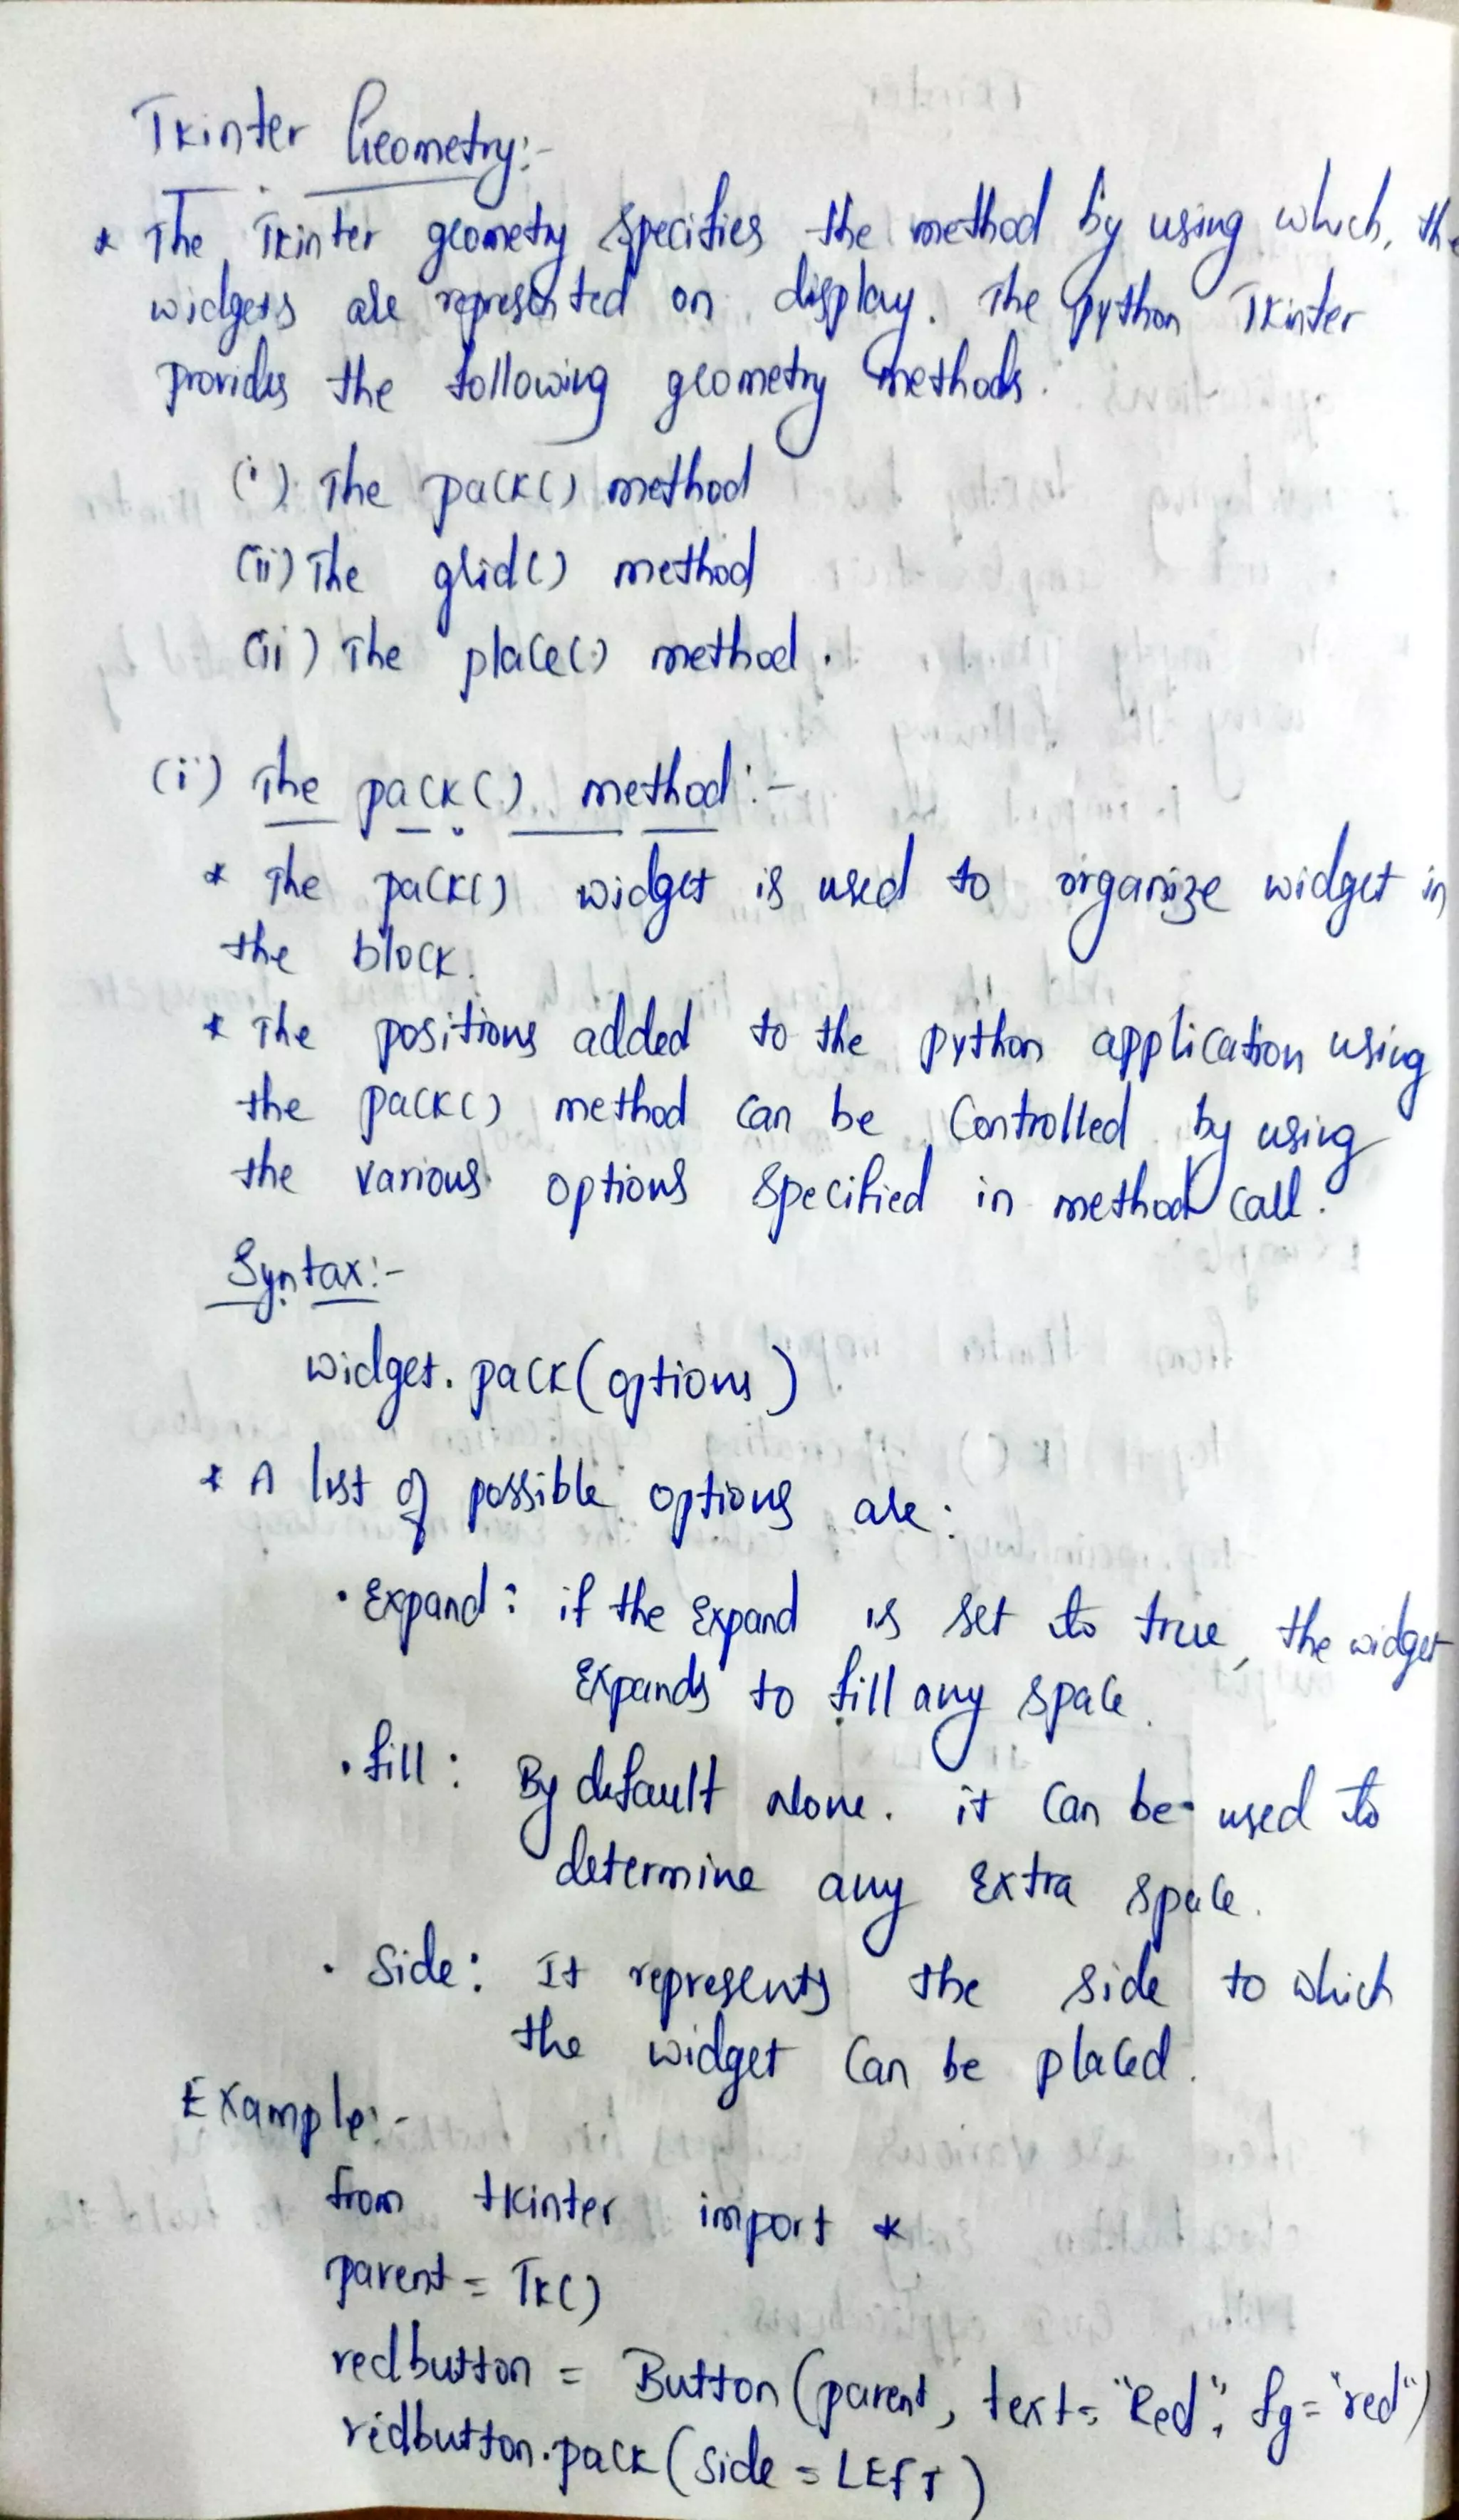 Tkinter Geometry:-
* The Tkinter geometry specifies the method by using which, the
widgets are represented on display. The python Tkinter
provides the following geometry methods.
(i) The pack() method
(ii) The grid() method
(iii) The place() method.
(i) The pack() method:-
* The pack() widget is used to organize widget in
the block.
* The positions added to the python application using
the pack() method can be controlled by using
the various options specified in method call.
Syntax:-
widget.pack(options)
* A list of possible options are:
• Expand: if the expand is set to true, the widget
Expands to fill any space.
• fill: By default None. it can be used to
determine any extra space.
• Side: It represents the side to which
the widget can be placed.
Example:-
from tkinter import *
parent = Tk()
redbutton = Button(parent, text="Red", fg="red")
redbutton.pack(side=LEFT)